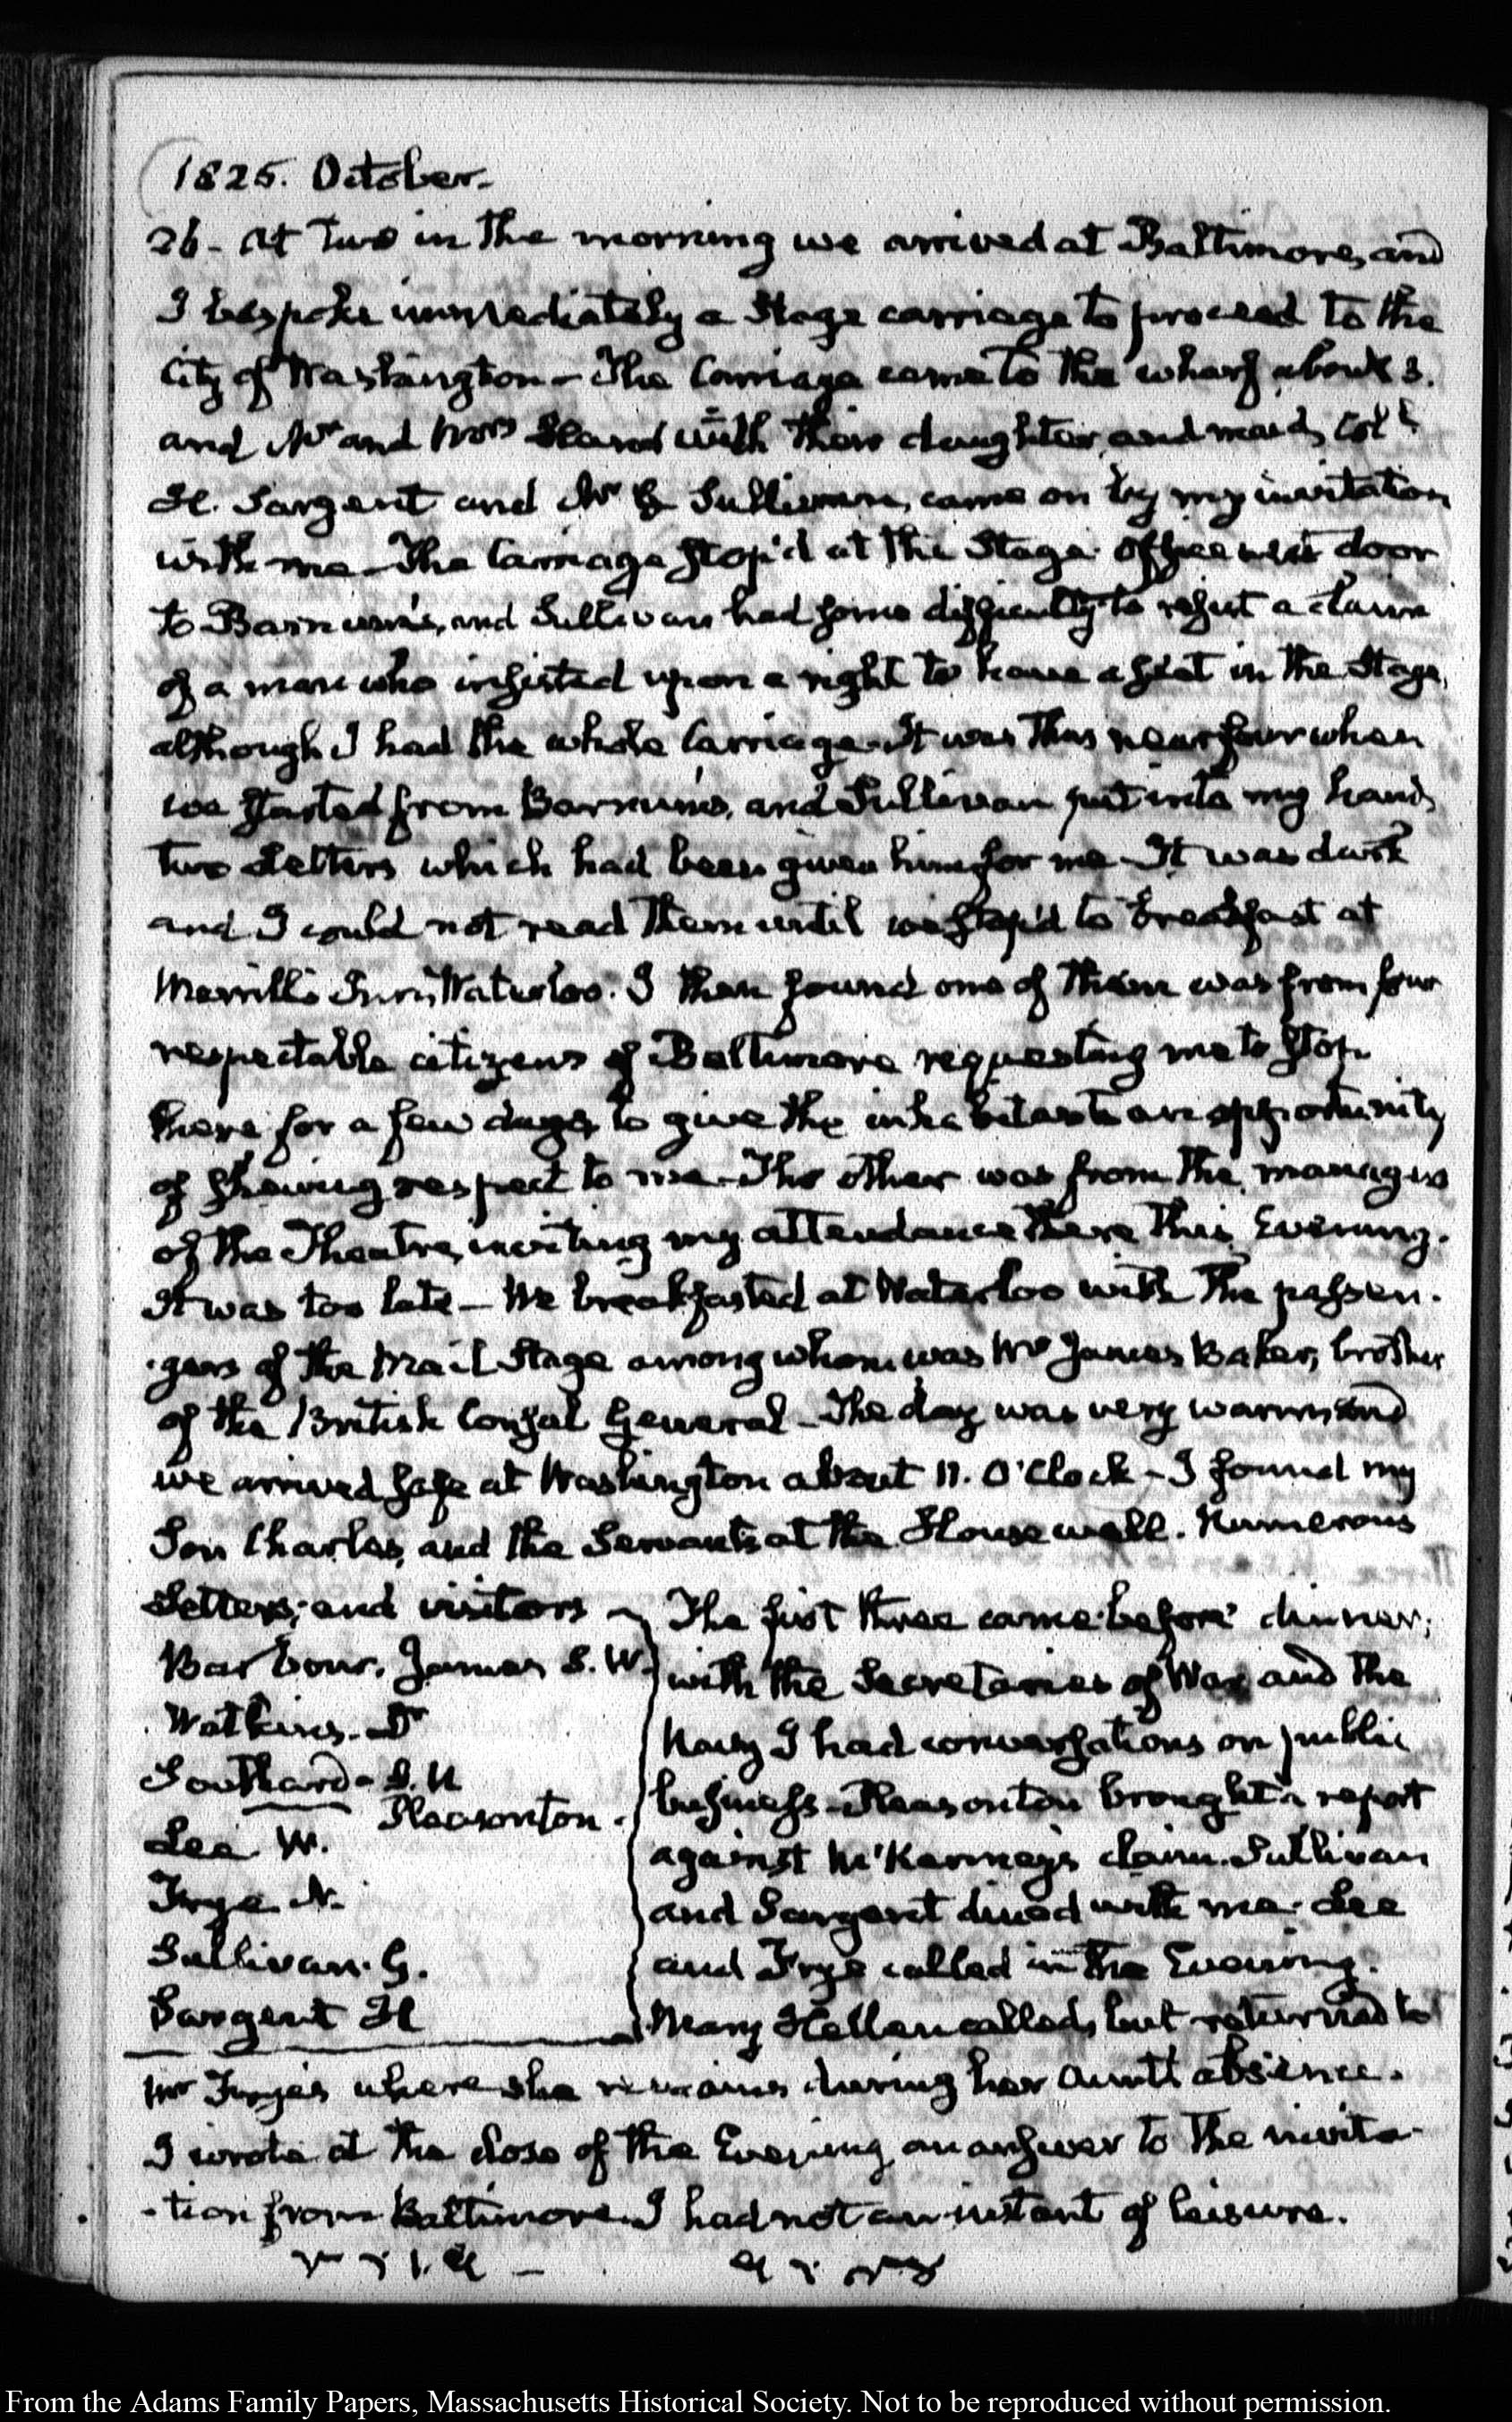 1825. October.
26- At two in the morning we arrived at Baltimore, and
I bespoke immediately a Stage carriage to proceed to the
City of Washington - The Carriage came to the wharf about 3.
and Mr and Mrs with their daughter, and maid, Coll
H. Sargent and Mr G Sullivan, came on by my invitation
with me - The Carriage stop'd at the Stage Office next door
to Barnum's, and Sullivan had some difficulty to refute a claim
of a man who insisted upon a right to have a seat in the Stage,
although I had the whole Carriage. It was thus near four when
we started from Barnum's, and Sullivan put into my hands
two Letters which had been given him for me - It was dark
and I could not read them until we stop'd to breakfast at
Merrill's Inn, Waterloo. I then found one of them was from four
respectable citizens of Baltimore requesting me to stop
there for a few days, to give the inhabitants an opportunity
of shewing respect to me - The other was from the managers
of the Theatre, inviting my attendance there this Evening.
It was too late - We breakfasted at Waterloo with the passen-
-gers of the Mail Stage among whom was Mr James Baker, brother
of the British Consul General - The day was very warm, and
we arrived safe at Washington about 11. O'Clock - I found my
Son Charles, and the Servants at the House well. Numerous
Letters, and visitors -
Barbour. James S. W.
Watkins. Dr
Southard - S. N
Pleasonton.
Lee W.
Frye N.
Sullivan. G.
Sargent H
The first three came before dinner;
with the Secretaries of War and the
Navy I had conversations on public
business - Pleasonton brought a report
against claim. Sullivan
and Sargent dined with me. Lee
and Frye called in the Evening.
Mary Hellen called, but returned to
Mr Frye's where she remains during her Aunt's absence.
I wrote at the close of the Evening an answer to the invita-
-tion from Baltimore. I had not an instant of leisure.
From the Adams Family Papers, Massachusetts Historical Society. Not to be reproduced without permission.